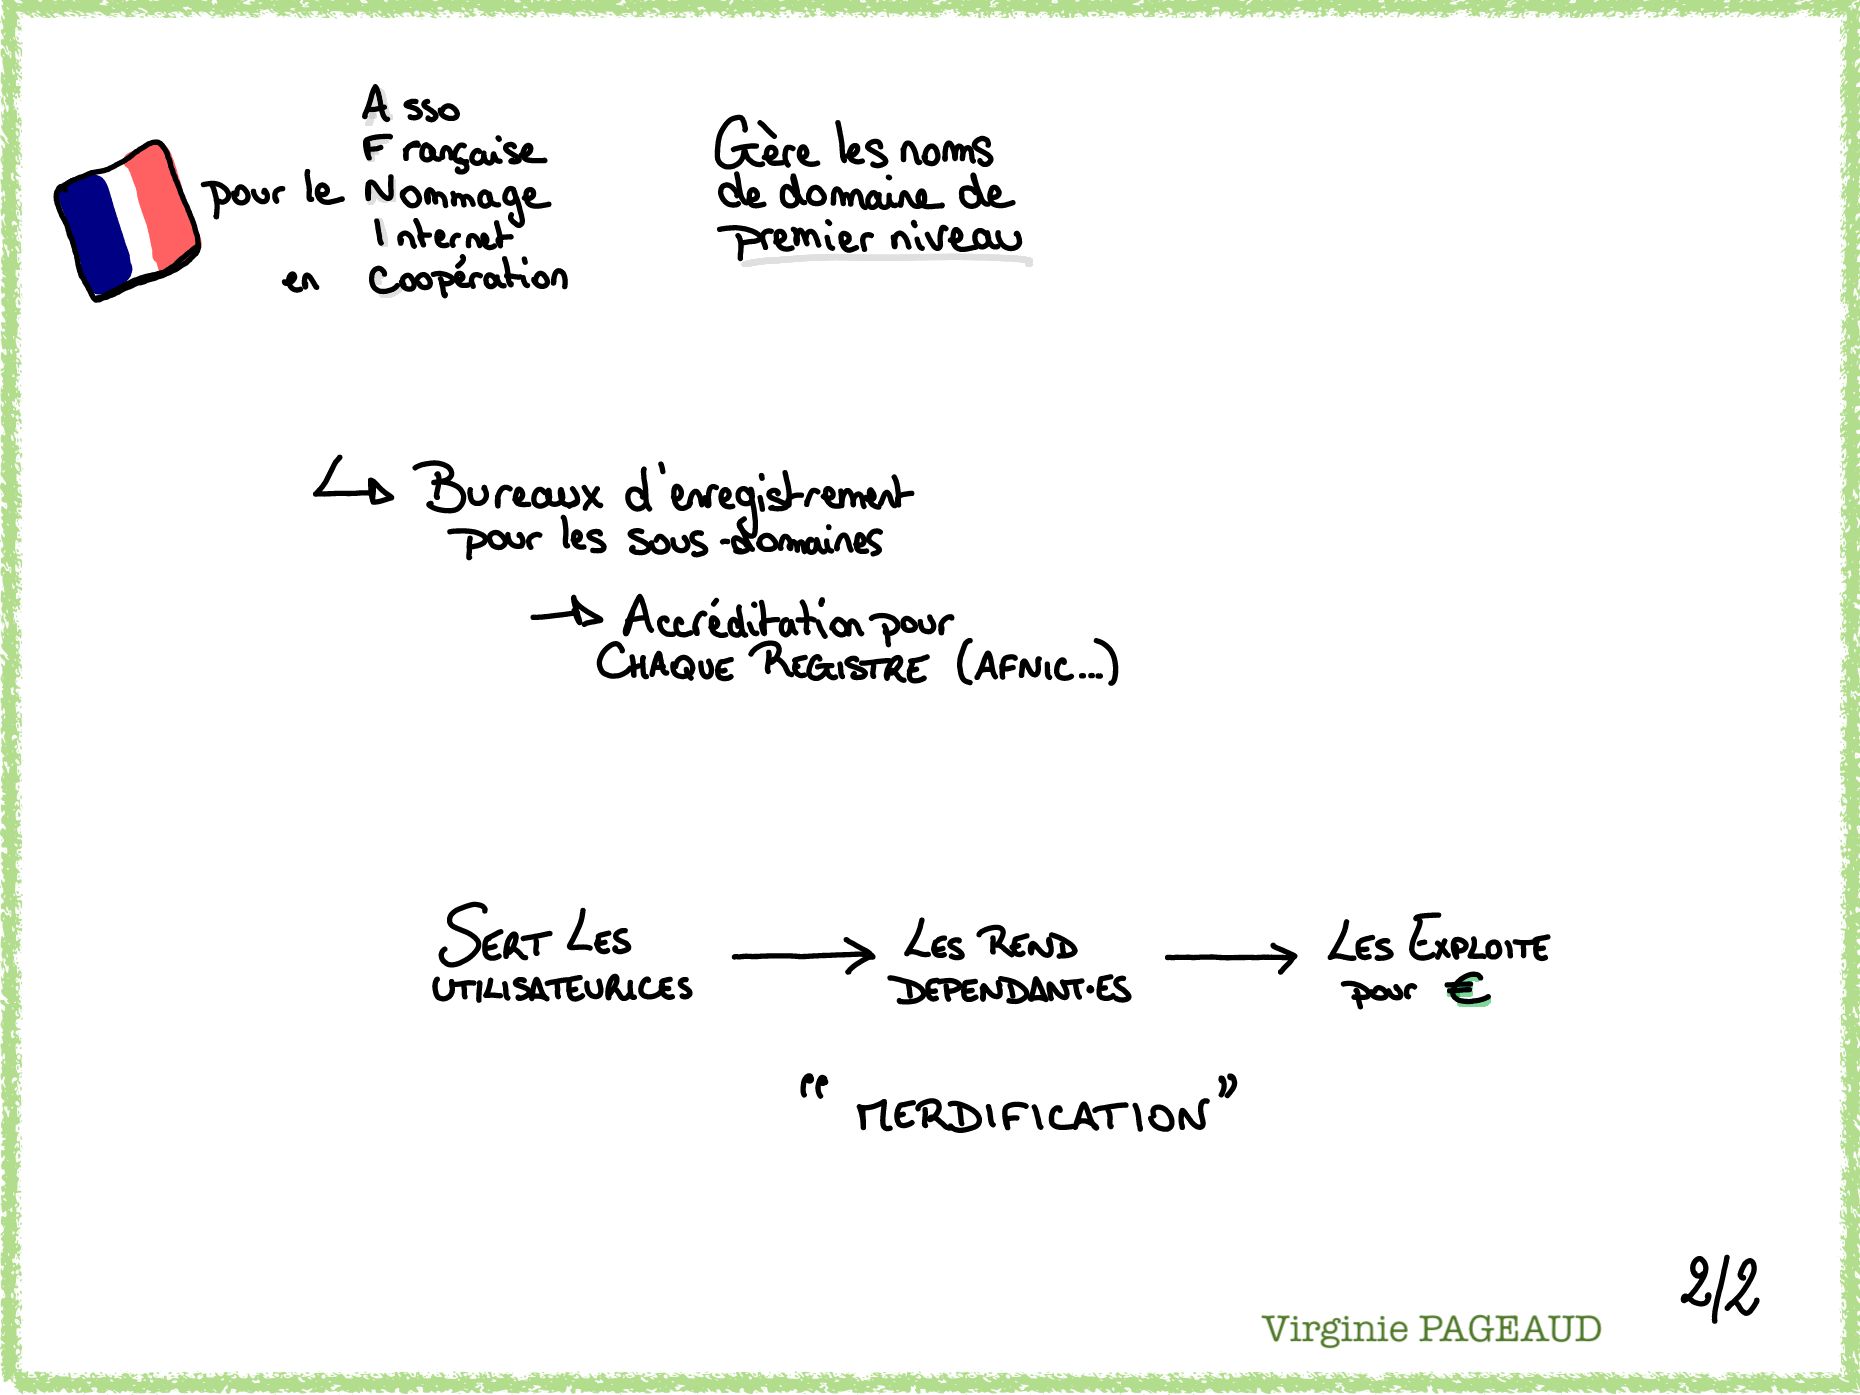 Asso
Française
pour le Nommage
Internet
en Coopération
Gère les noms
de domaine de
premier niveau
Bureaux d'enregistrement
pour les sous-domaines
Accréditation pour
CHAQUE REGISTRE (AFNIC...)
SERT LES
UTILISATEURICES
LES REND
DEPENDANT·ES
LES EXPLOITE
pour €
“ MERDIFICATION ”
2/2
Virginie PAGEAUD